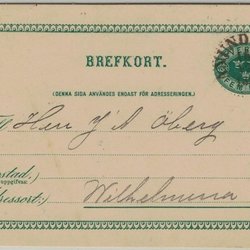 BREFKORT.
(DENNA SIDA ANVÄNDES ENDAST FÖR ADRESSERINGEN.)
Herr J A Öberg
Wilhelmina